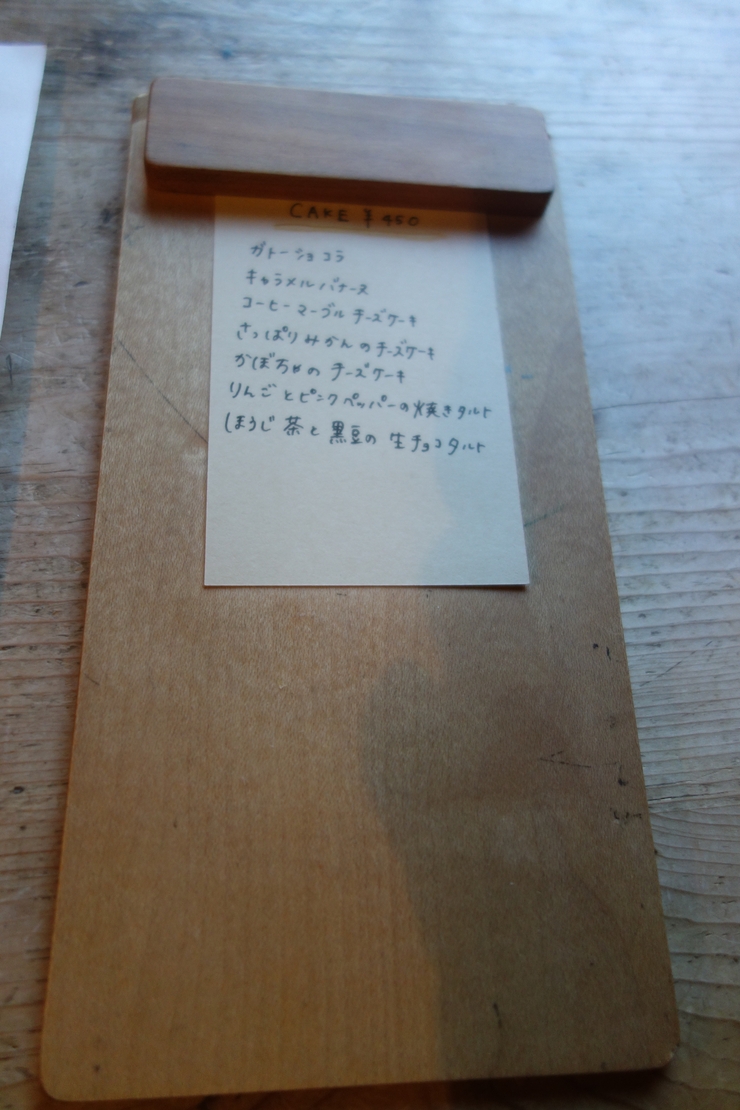 CAKE ¥450
ガトーショコラ
キャラメルバナーヌ
コーヒーマーブルチーズケーキ
さっぱりみかんのチーズケーキ
かぼちゃのチーズケーキ
りんごとピンクペッパーの焼きタルト
ほうじ茶と黒豆の生チョコタルト